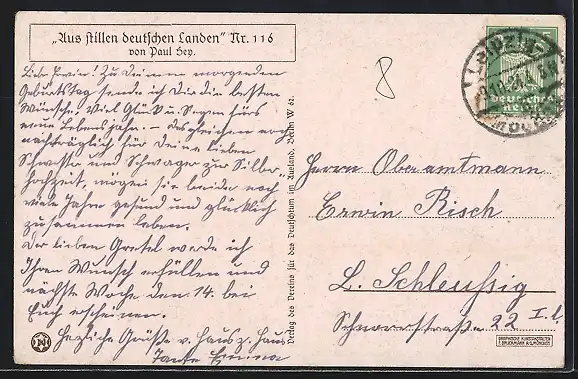 „Aus stillen deutschen Landen" Nr. 116
von Paul Hey.
Lieber Erwin! Zu Deinem morgenden
Geburtstag sende ich Dir die besten
Wünsche, viel Glück u. Segen fürs
neue Lebensjahr. – desgleichen noch
nachträglich für Deine lieben
Schwester und Schwager zur Silber-
hochzeit, mögen sie beide noch
viele Jahre gesund und glücklich
zusammen leben.
Der lieben Gretel werde ich
Ihren Wunsch erfüllen und
nächste Woche den 14. bei
Euch erscheinen.
Herzliche Grüße v. Haus z. Haus
Tante Emma
Verlag des Vereins für das Deutschtum im Ausland, Berlin W 62.
8
LEIPZIG
DEUTSCHES
REICH
Herrn Oberamtmann
Erwin Risch
L. Schleußig
Schnorrstraße 22 I. l.
GRAPHISCHE KUNSTANSTALTEN
F. BRUCKMANN A.G. MÜNCHEN